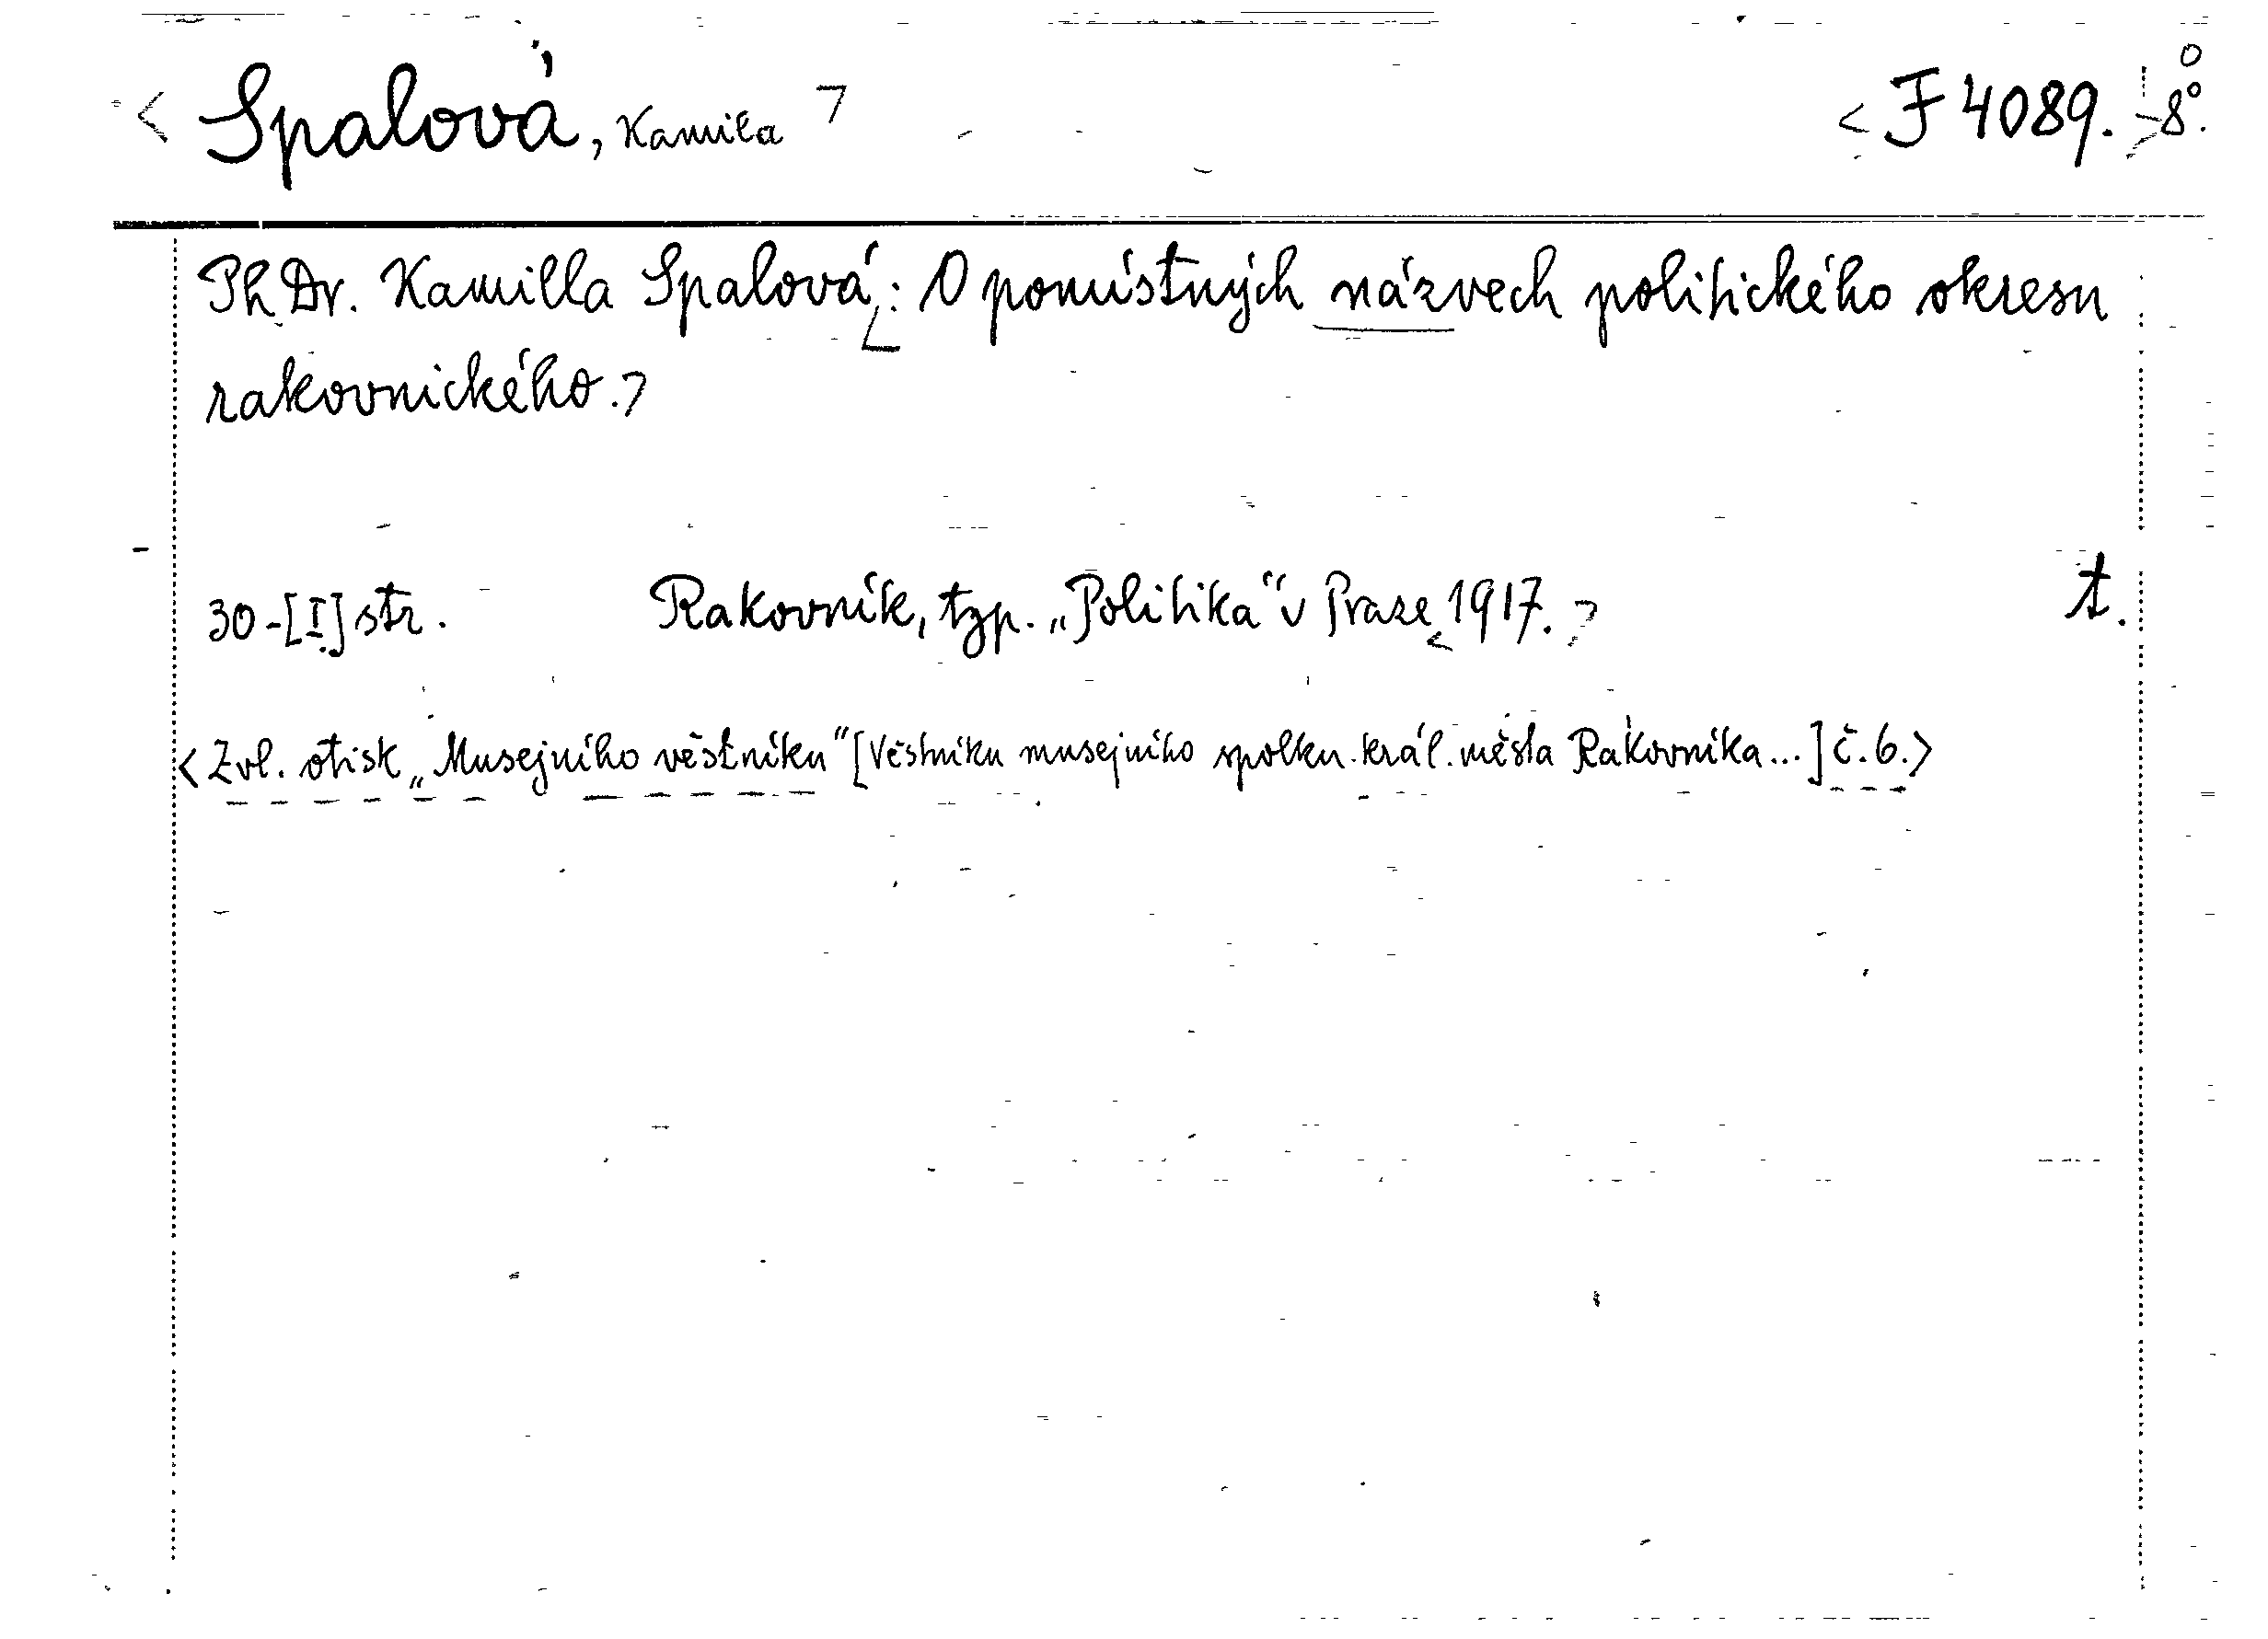 < Spalová, Kamila > < F 4089. > 8°.
PhDr. Kamilla Spalová: < O pomístných názvech politického okresu
rakovnického. >
30-[I] str. Rakovník, typ. „Politika“ v Praze < 1917. > t.
< Zvl. otisk „Musejního věstníku“ [Věstníku musejního spolku král. města Rakovníka...] č. 6. >